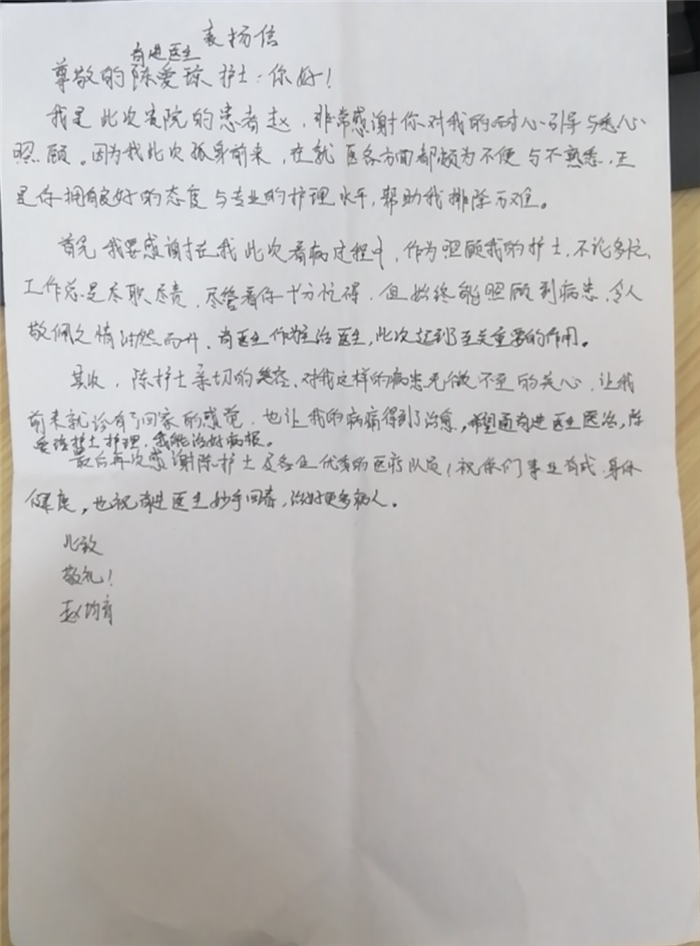 表扬信
肖进医生
尊敬的陈爱琼护士:你好!
我是此次贵院的患者赵,非常感谢你对我的耐心引导与悉心
照顾。因为我此次孤身前来,在就医各方面都颇为不便与不熟悉,正
是你拥有良好的态度与专业的护理水平,帮助我排除万难。
首先我要感谢在我此次看病过程中,作为照顾我的护士,不论多忙,
工作总是尽职尽责,尽管看你十分忙碌,但始终能照顾到病患,令人
敬佩之情油然而升,肖医生作为主治医生,此次起到了至关重要的作用。
其次,陈护士亲切的笑容,对我这样的病患无微不至的关心,让我
前来就诊有了回家的感觉,也让我的病痛得到了治愈,希望通肖进医生医治,陈
爱琼护士护理,我能治好病根。
最后再次感谢陈护士及各位优秀的医疗队员,祝你们事业有成,身体
健康,也祝肖进医生妙手回春,治好更多病人。
此致
敬礼!
赵均育